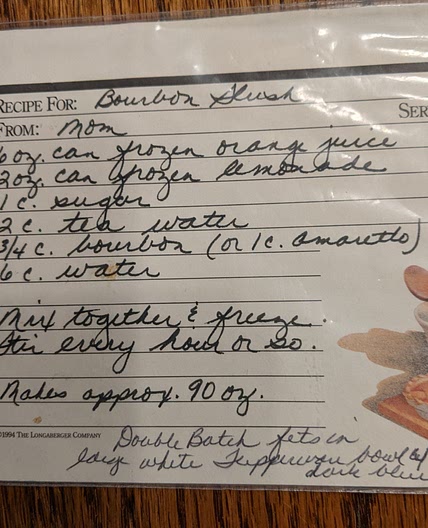 RECIPE FOR: Bourbon Slush
FROM: Mom SER
6 oz. can frozen orange juice
2 oz. can frozen lemonade
1 c. sugar
2 c. tea water
3/4 c. bourbon (or 1 c. amaretto)
6 c. water
Mix together & freeze.
Stir every hour or so.
Makes approx. 90 oz.
©1994 THE LONGABERGER COMPANY
Double Batch fits in
large white Tupperware bowl w/
dark blue